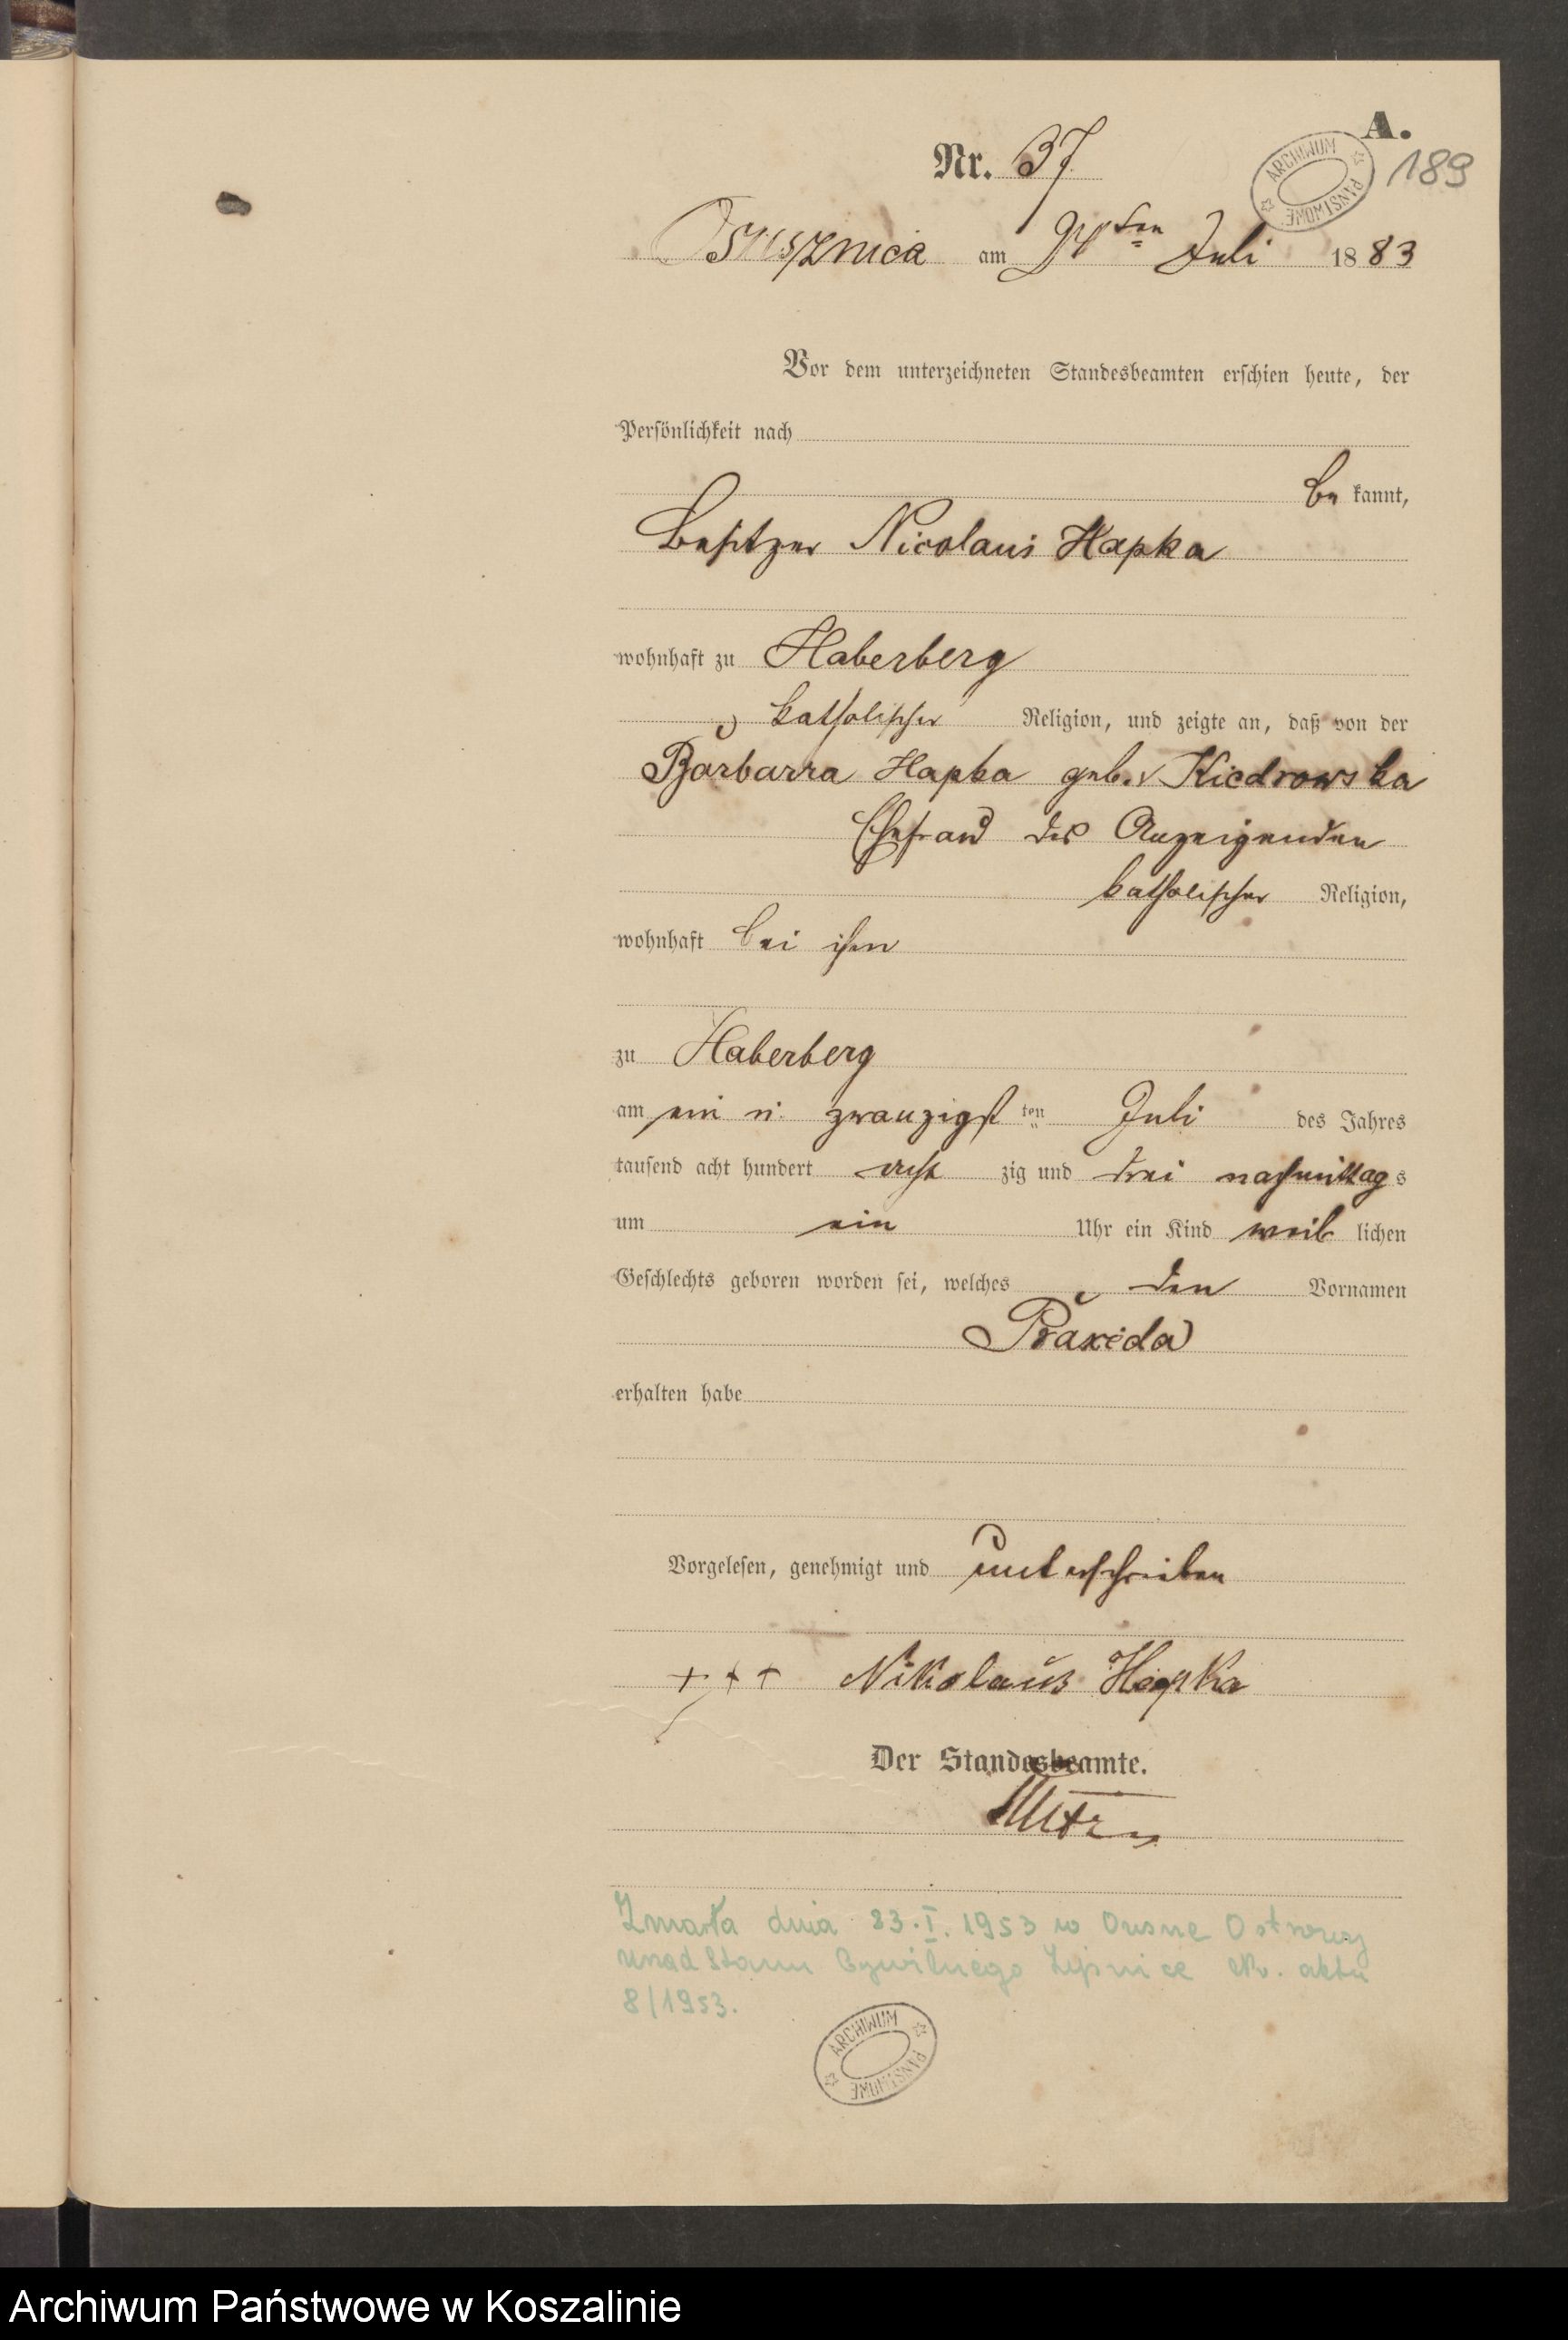 A.
Nr. 37
ARCHIWUM PAŃSTWOWE
189
am 24ten Juli 1883
Vor dem unterzeichneten Standesbeamten erschien heute, der
Persönlichkeit nach
be kannt,
Besitzer Nicolaus Hapka
wohnhaft zu Haberberg
katholischer Religion, und zeigte an, daß von der
Barbarra Hapka geb. v Kiedrowska
Ehefrau des Anzeigenden
katholischer Religion,
wohnhaft bei ihm
zu Haberberg
am ein u. zwanzigst ten Juli des Jahres
tausend acht hundert acht zig und drei nachmittag s
um ein Uhr ein Kind weib lichen
Geschlechts geboren worden sei, welches den Vornamen
Praxeda
erhalten habe
Vorgelesen, genehmigt und unterschrieben
+++ Nikolaus Hapka
Der Standesbeamte.
Zmarła dnia 23.I.1953 w Ostrowy
Urząd Stanu Cywilnego Lipnice Nr. aktu
8/1953.
ARCHIWUM PAŃSTWOWE
Archiwum Państwowe w Koszalinie